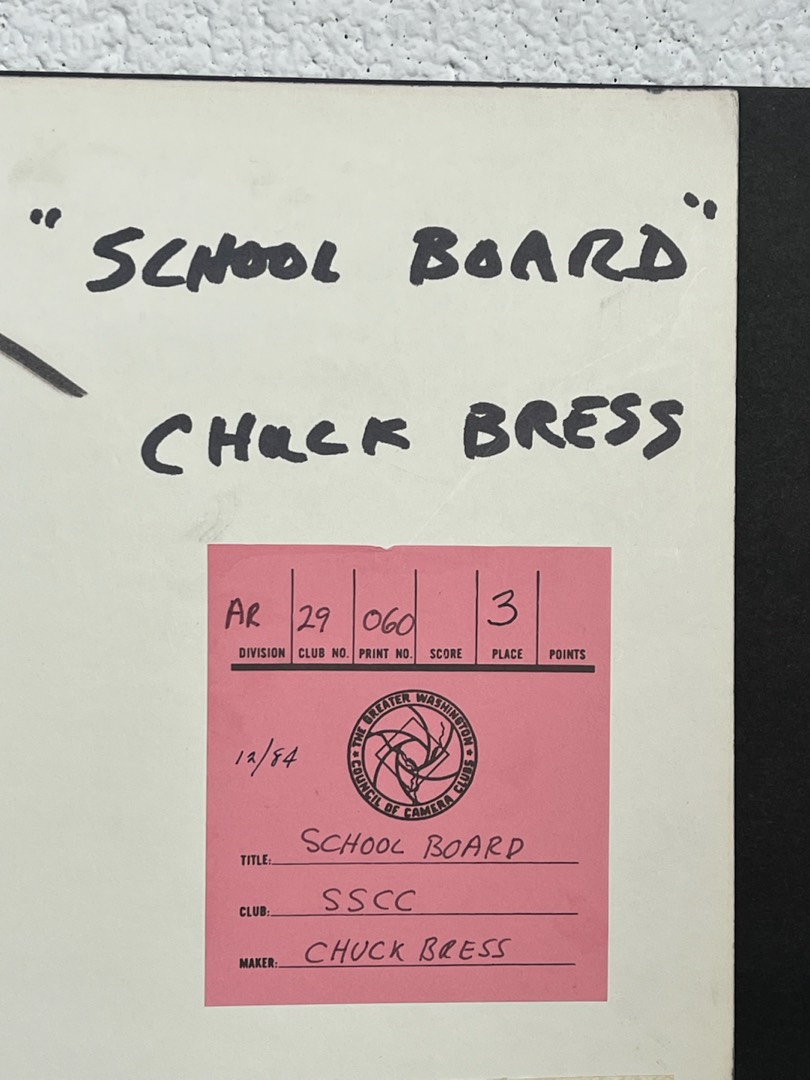 "SCHOOL BOARD"
CHUCK BRESS
AR 29 060 3
DIVISION CLUB NO. PRINT NO. SCORE PLACE POINTS
THE GREATER WASHINGTON
COUNCIL OF CAMERA CLUBS
12/84
TITLE: SCHOOL BOARD
CLUB: SSCC
MAKER: CHUCK BRESS